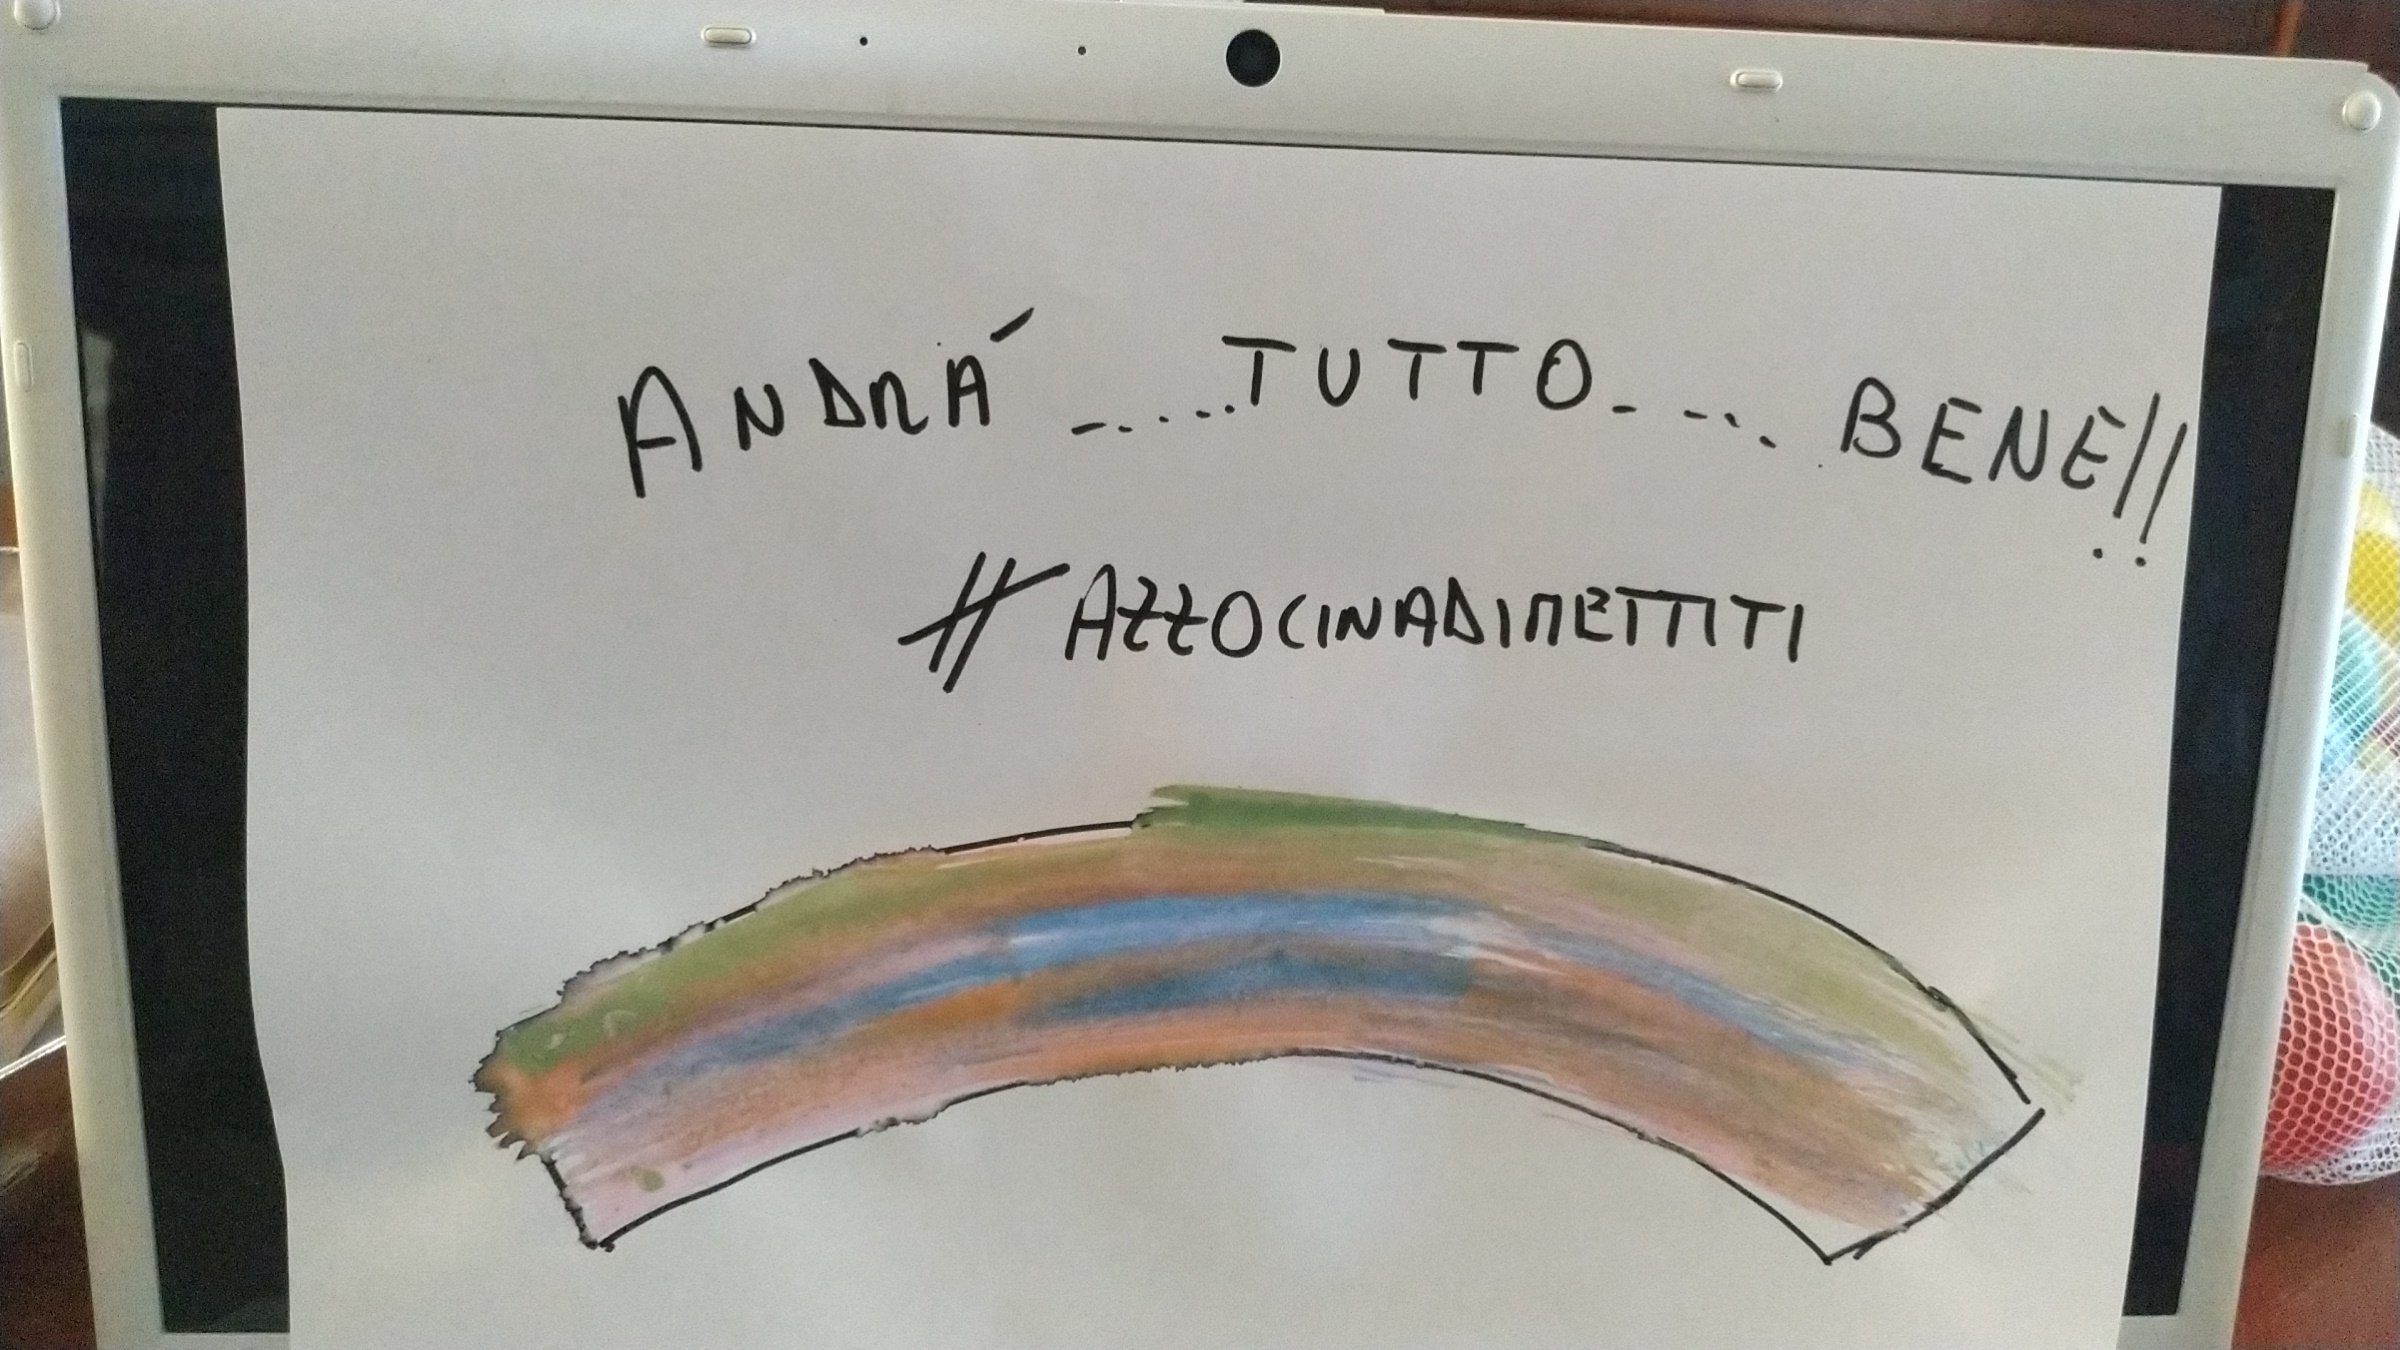 ANDRÁ ......TUTTO..... BENE!!
#AZZOCINADIMETTITI